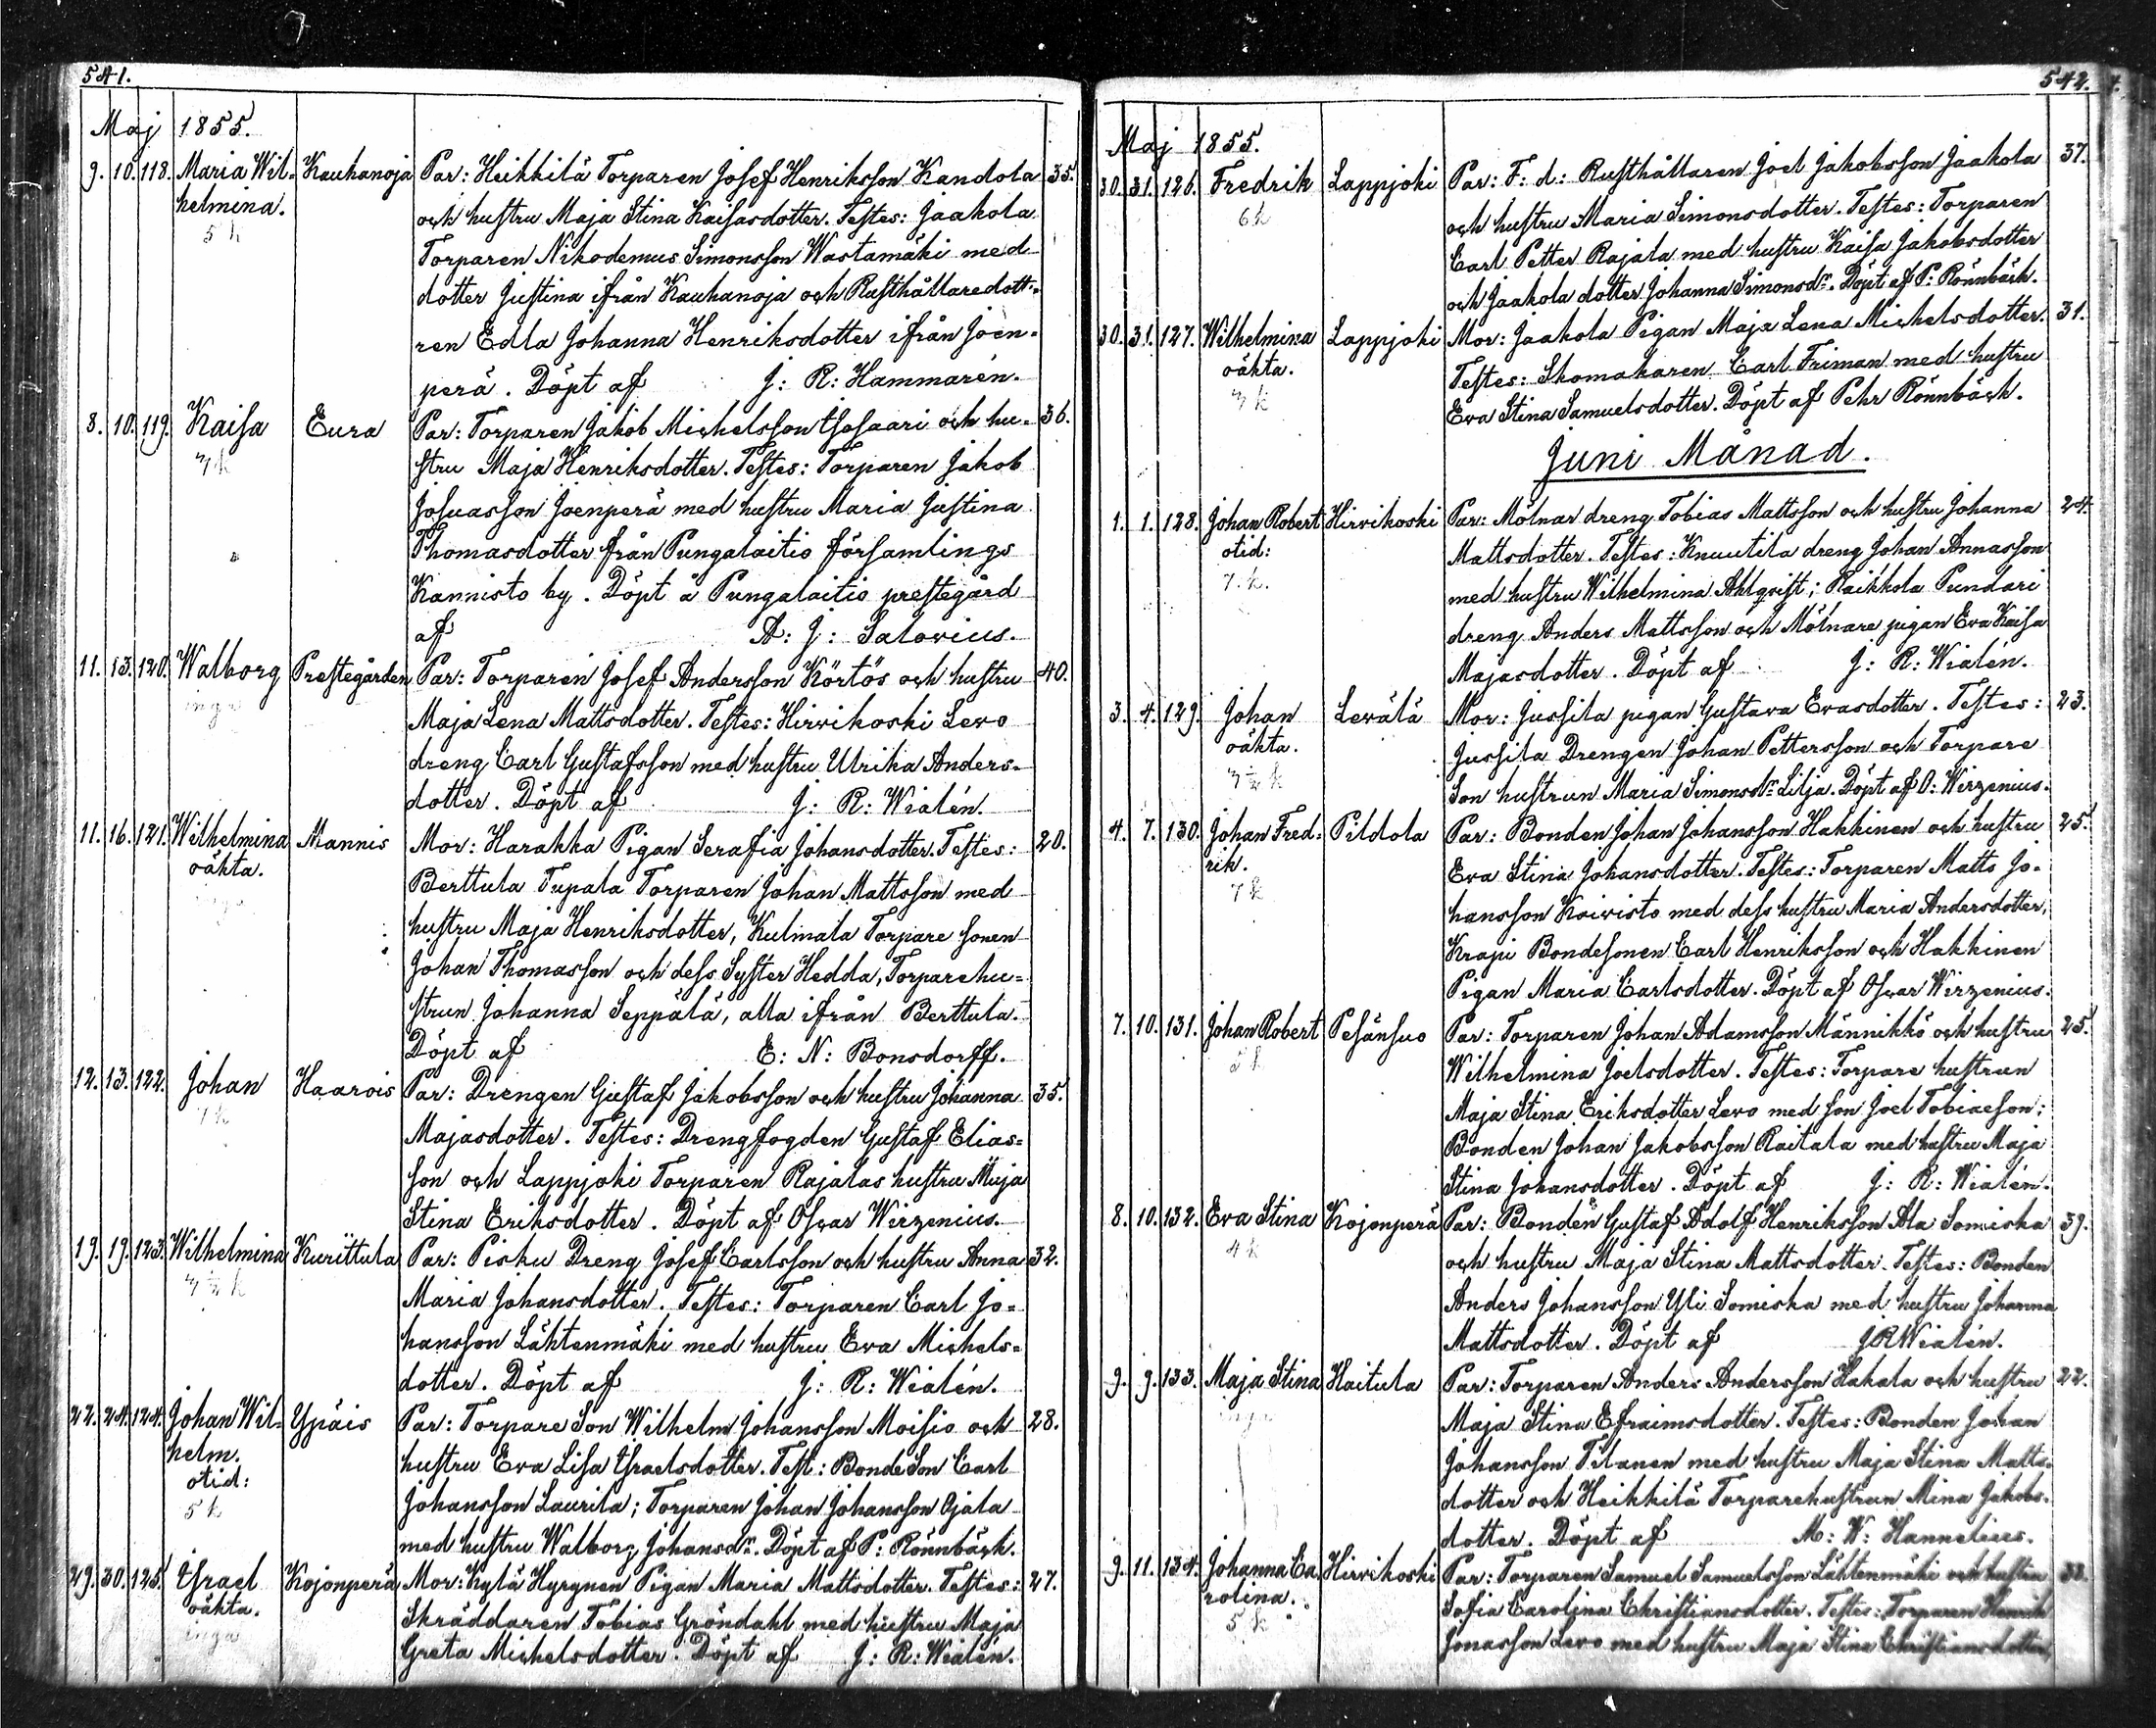 541.
Maj 1855.
9. 10. 118. Maria Wil- Kauhanoja Par: Heikkilä Torparen Josef Henriksson Kandola 35.
helmina. och hustru Maja Stina Kaisasdotter. Testes: Jaakola
5 k Torparen Nikodemus Simonsson Wastamäki med
dotter Justina ifrån Kauhanoja och Rusthållaredott-
ren Edla Johanna Henriksdotter ifrån Joen-
perä. Döpt af J: R: Hammarén.
8. 10. 119. Kaisa Eura Par: Torparen Jakob Michelsson Isosaari och hu- 36.
7 k stru Maja Henriksdotter. Testes: Torparen Jakob
Josuasson Joenperä med hustru Maria Justina
Thomasdotter från Pungalaitio församlings
Kannisto by. Döpt å Pungalaitio prestegård
af A: J: Salovius.
11. 13. 120. Walborg Prestegården Par: Torparen Josef Andersson Körtös och hustru 40.
inga Maja Lena Mattsdotter. Testes: Hirvikoski Levo
dreng Carl Gustafsson med hustru Ulrika Anders-
dotter. Döpt af J: R: Wialén.
11. 16. 121. Wilhelmina Mannis Mor: Harakka Pigan Serafia Johansdotter. Testes: 20.
oäkta. Berttula Tupala Torparen Johan Mattsson med
hustru Maja Henriksdotter, Kulmala Torpare sonen
Johan Thomasson och dess Syster Hedda, Torparehu-
strun Johanna Seppälä, alla ifrån Berttula.
Döpt af E: N: Bonsdorff.
12. 13. 122. Johan Haarois Par: Drengen Gustaf Jakobsson och hustru Johanna 35.
7 k Majasdotter. Testes: Drengfogden Gustaf Elias-
son och Lappjoki Torparen Rajalas hustru Maja
Stina Eriksdotter. Döpt af Oscar Wirzenius.
19. 19. 123. Wilhelmina Kurittula Par: Pisku Dreng Josef Carlsson och hustru Anna 32.
7 ½ k Maria Johansdotter. Testes: Torparen Carl Jo-
hansson Lähtenmäki med hustru Eva Michels-
dotter. Döpt af J: R: Wialén.
22. 24. 124. Johan Wil- Ypäis Par: Torpare Son Wilhelm Johansson Moisio och 28.
helm. hustru Eva Lisa Israelsdotter. Test: Bonde Son Carl
otid: Johansson Laurila; Torparen Johan Johansson Ojala
5 k med hustru Walborg Johansdr. Döpt af P: Rönnbäck.
29. 30. 125. Israel Kojonperä Mor: Kylä Hyrynen Pigan Maria Mattsdotter. Testes: 27.
oäkta. Skräddaren Tobias Gröndahl med hustru Maja
inga Greta Michelsdotter. Döpt af J: R: Wialén.
542.
Maj 1855.
30. 31. 126. Fredrik Lappjoki Par: F: d: Rusthållaren Joel Jakobsson Jaakola 37.
6 k och hustru Maria Simonsdotter. Testes: Torparen
Carl Petter Rajala med hustru Kaisa Jakobsdotter
och Jaakola dotter Johanna Simonsdr. Döpt af P: Rönnbäck.
30. 31. 127. Wilhelmina Lappjoki Mor: Jaakola Pigan Maja Lena Michelsdotter. 31.
oäkta. Testes: Skomakaren Carl Friman med hustru
7 k Eva Stina Samuelsdotter. Döpt af Pehr Rönnbäck.
Juni Månad.
1. 1. 128. Johan Robert Hirvikoski Par: Mölnar dreng Tobias Mattsson och hustru Johanna 24.
otid: Mattsdotter. Testes: Knuutila dreng Johan Annasson
7. k. med hustru Wilhelmina Ahlqvist; Raikkola Pundari
dreng Anders Mattsson och Mölnare pigan Eva Kaisa
Majasdotter. Döpt af J: R: Wialén.
3. 4. 129. Johan Levälä Mor: Jussila pigan Gustava Evasdotter. Testes: 23.
oäkta. Jussila Drengen Johan Pettersson och Torpare
7 ½ k Son hustrun Maria Simonsdr Lilja. Döpt af O: Wirzenius.
4. 7. 130. Johan Fred- Pildola Par: Bonden Johan Johansson Hakkinen och hustru 25.
rik. Eva Stina Johansdotter. Testes: Torparen Matts Jo-
7 k hansson Koivisto med dess hustru Maria Andersdotter,
Krapi Bondesonen Carl Henriksson och Hakkinen
Pigan Maria Carlsdotter. Döpt af Oscar Wirzenius.
7. 10. 131. Johan Robert Pesänsuo Par: Torparen Johan Adamsson Männikkö och hustru 25.
5 k Wilhelmina Joelsdotter. Testes: Torpare hustrun
Maja Stina Eriksdotter Levo med son Joel Tobiaeson;
Bonden Johan Jakobsson Raitala med hustru Maja
Stina Johansdotter. Döpt af J: R: Wialén.
8. 10. 132. Eva Stina Kojonperä Par: Bonden Gustaf Adolf Henriksson Ala Somiska 39.
4 k och hustru Maja Stina Mattsdotter. Testes: Bonden
Anders Johansson Yli Somiska med hustru Johanna
Mattsdotter. Döpt af J R Wialén.
9. 9. 133. Maja Stina Haitula Par: Torparen Anders Andersson Hakala och hustru 22.
inga Maja Stina Efraimsdotter. Testes: Bonden Johan
Johansson Titanen med hustru Maja Stina Matts-
dotter och Heikkilä Torparehustrun Mina Jakobs-
dotter. Döpt af M: W: Hannelius.
9. 11. 134. Johanna Ca- Hirvikoski Par: Torparen Samuel Samuelsson Lähtenmäki och hustru 38.
rolina. Sofia Carolina Christiansdotter. Testes: Torparen Henrik
5 k Jonasson Levo med hustru Maja Stina Christiansdotter,